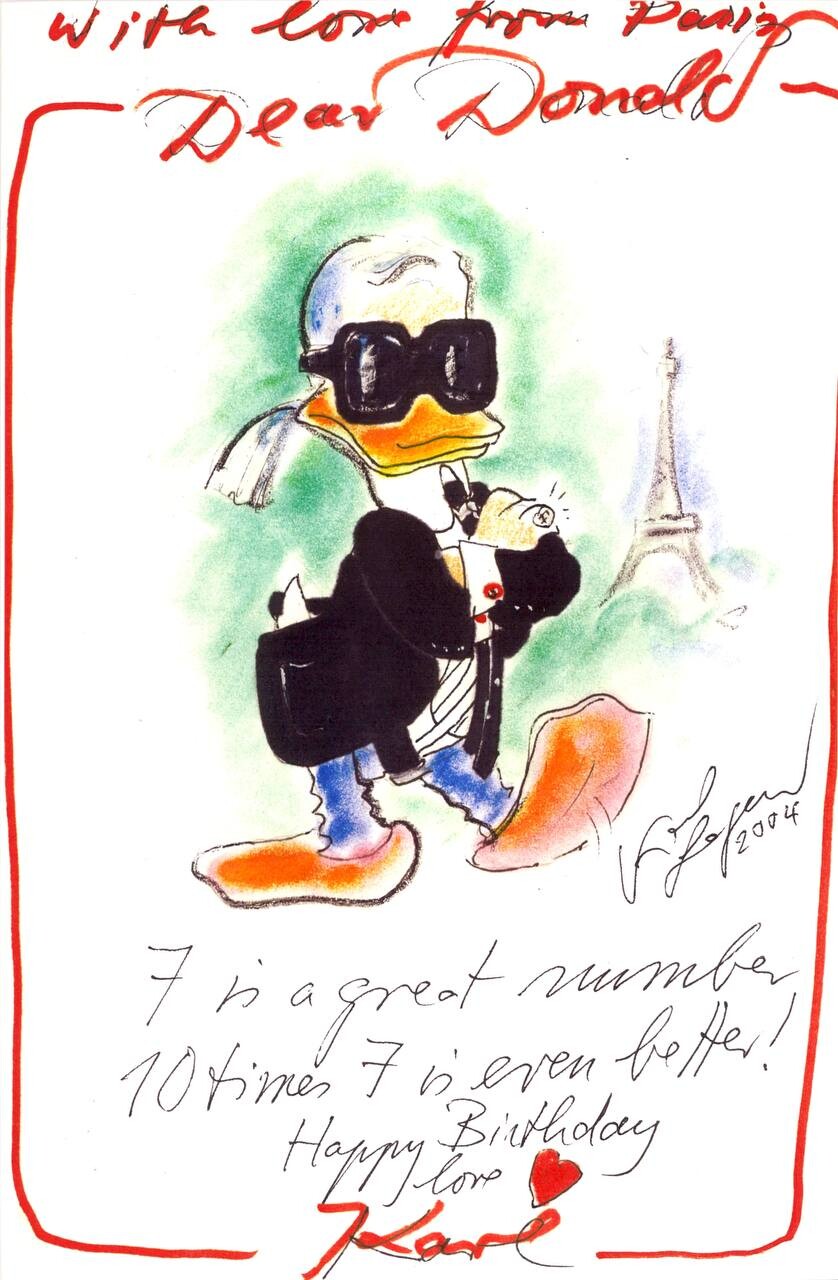 With love from Paris
Dear Donald
2004
7 is a great number
10 times 7 is even better!
Happy Birthday
love
Karl